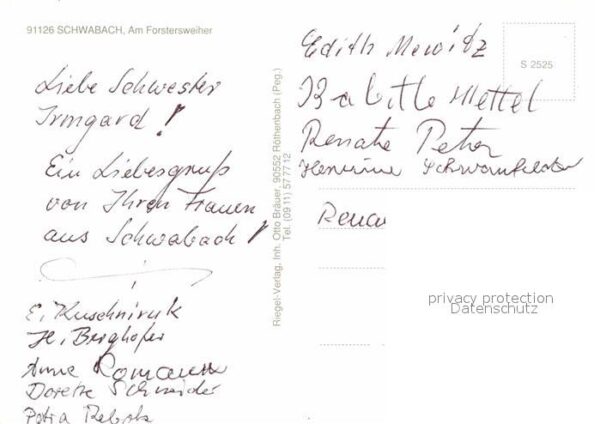 91126 SCHWABACH, Am Forstersweiher
Liebe Schwester
Irmgard!
Ein Liebesgruß
von Ihren Frauen
aus Schwabach!
E. Kuschniruk
H. Berghofer
Anna Romann
Dorette Schneider
Petra
Riegel-Verlag, Inh. Otto Bräuer, 90552 Röthenbach (Peg.)
Tel. (09 11) 57 77 12
Edith Mewitz
Babette Mettel
Renate Peter
Hermine
Renau
S 2525
privacy protection
Datenschutz